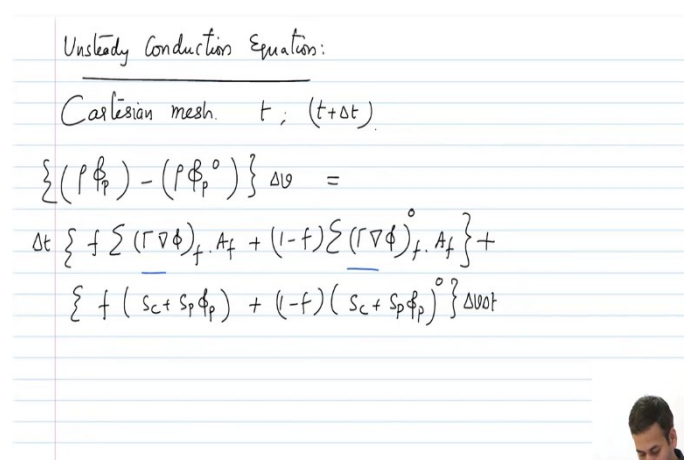 Unsteady Conduction Equation:
Cartesian mesh. t, (t+Δt).
{(ρϕ_p) - (ρϕ_p°)} Δυ =
Δt { f Σ (Γ∇ϕ)_f . A_f + (1-f) Σ (Γ∇ϕ)°_f . A_f } +
{ f ( S_c + S_p ϕ_p) + (1-f) ( S_c + S_p ϕ_p)° } Δυ Δt